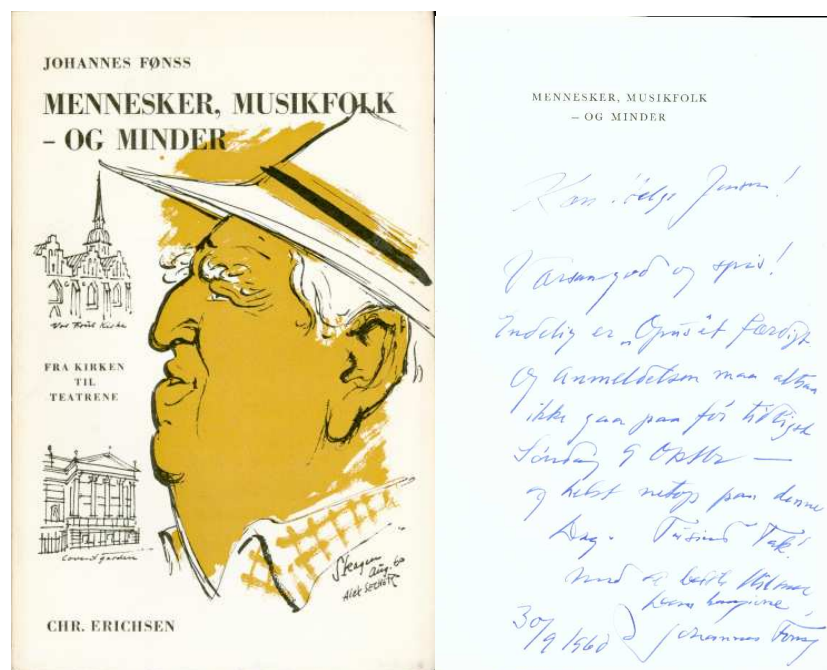 JOHANNES FØNSS
MENNESKER, MUSIKFOLK
– OG MINDER
Vor Frue Kirke
FRA KIRKEN
TIL
TEATRENE
Covent garden
Skagen
Aug. 60
CHR. ERICHSEN
MENNESKER, MUSIKFOLK
– OG MINDER
Jensen!
Værsaagod og spis!
Endelig er „Opus’et færdigt
og Anmeldelsen maa altsaa
ikke gaa paa før tidligst
Søndag 9 Oktbr —
og helst netop paa denne
Dag. Tusind Tak!
med de bedste Hilsner
Deres hengivne
30/9 1960 Johannes Fønss